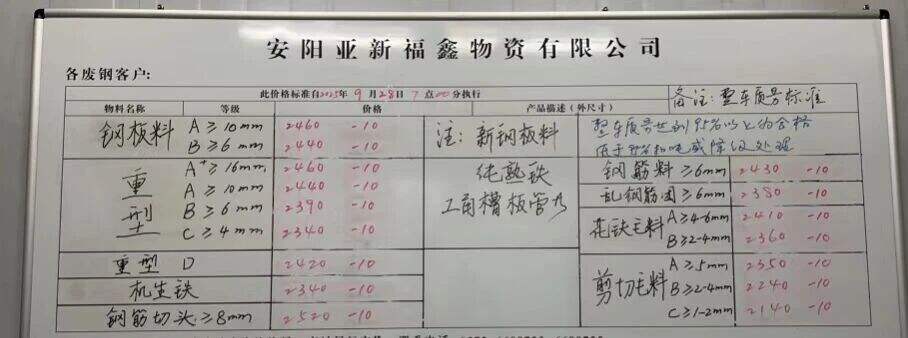 安阳亚新福鑫物资有限公司
各废钢客户:
此价格标准自2025年9月28日7点00分执行
备注:整车质号标准
物料名称 等级 价格 产品描述(外尺寸)
钢板料 A≥10mm 2460 -10
B≥6mm 2440 -10
注:新钢板料
整车质号达到95%以上为合格
重型 A+≥16mm 2460 -10
A≥10mm 2440 -10
B≥6mm 2390 -10
C≥4mm 2340 -10
纯熟铁
工角槽板管
钢筋料≥6mm 2430 -10
乱钢筋团≥6mm 2380 -10
花铁毛料 A≥4-6mm 2410 -10
B≥2-4mm 2360 -10
重型 D 2420 -10
机生铁 2340 -10
钢筋切头≥8mm 2520 -10
剪切毛料 A≥5mm 2350 -10
B≥2-4mm 2240 -10
C≥1-2mm 2140 -10